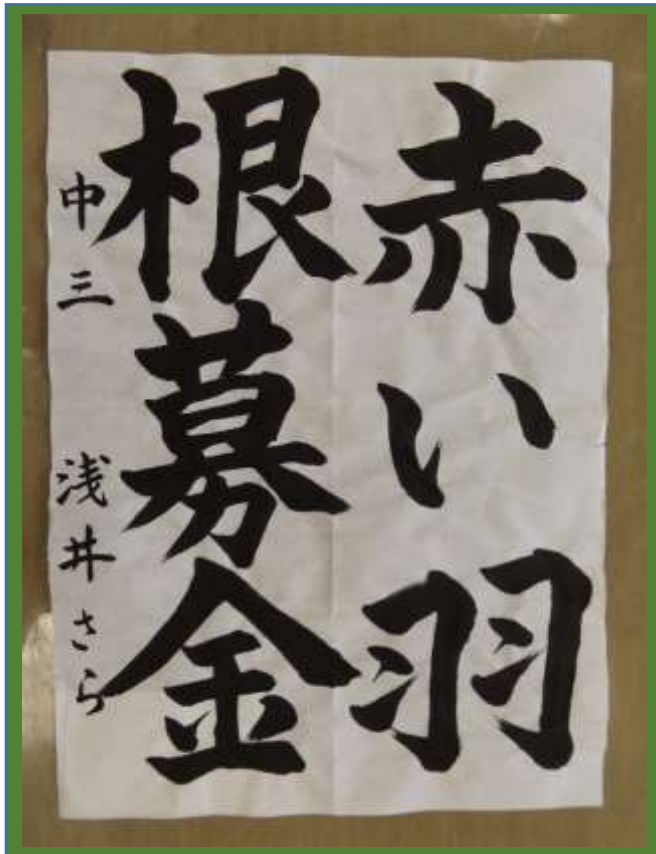 赤い羽
根募金
中三 浅井さら